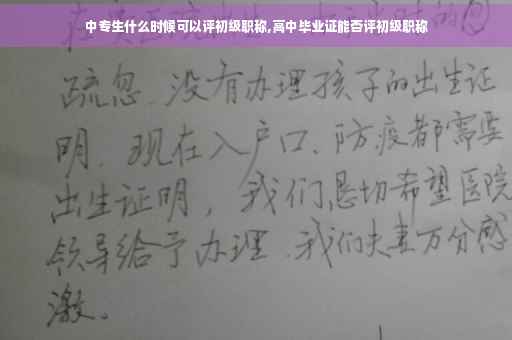 中专生什么时候可以评初级职称,高中毕业证能否评初级职称
疏忽、没有办理孩子的出生证
明、现在入户口、防疫都需要
出生证明，我们恳切希望医院
领导给予办理、我们夫妻万分感
激。